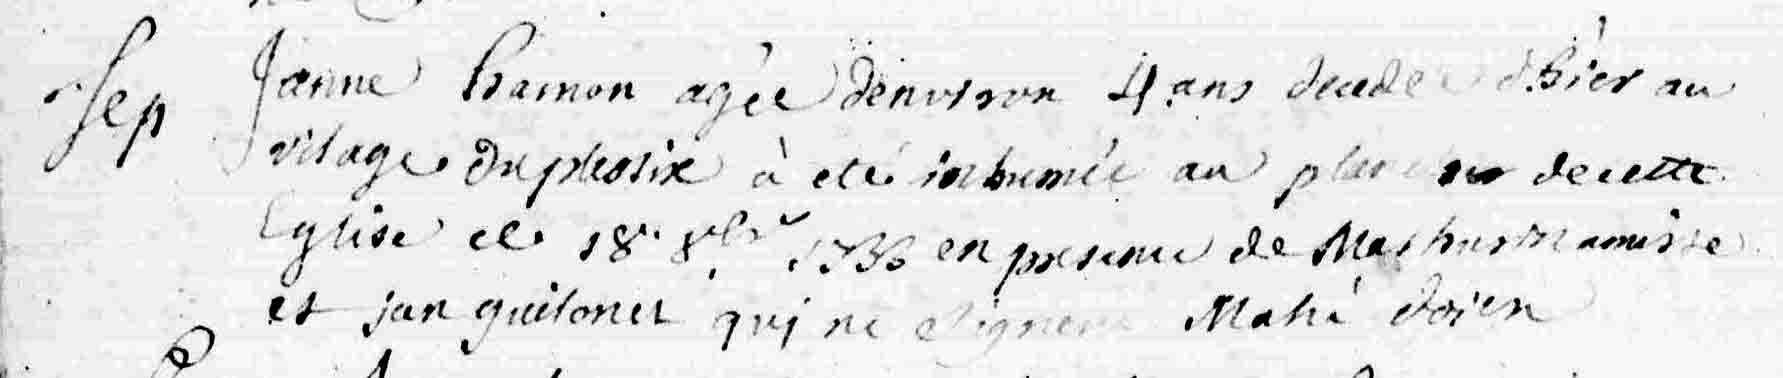 Sep Janne hamon agée denviron 4 ans decedée d'hier au
vilage du plessix à eté inhumée au de cette
Eglise ce 18e 8bre en presence de Mathurin
et jan guilonet qui ne signent Mahé doien